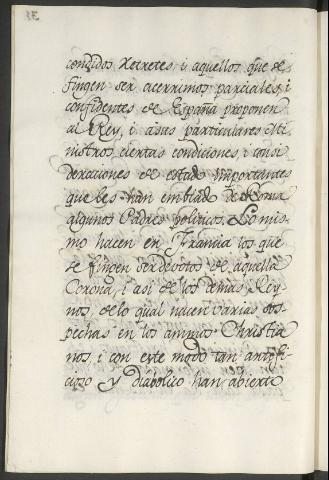 condidos Retretes; i aquellos que se
fingen ser acerrimos parciales, i
confidentes de España proponen
al Rey, i asus particulares Mi
nistros, ciertas condiciones, i consi
deraciones de estado importantes
que les han embiado de Roma
algunos Padres politicos. Lo mis
mo hacen en Francia los que
se fingen ser devotos de aquella
Corona, i asi de los demas Rey
nos, de lo qual nacen varias sos
pechas en los animos Christia
nos, i con este modo tan artifi
cioso y diabolico han abierto